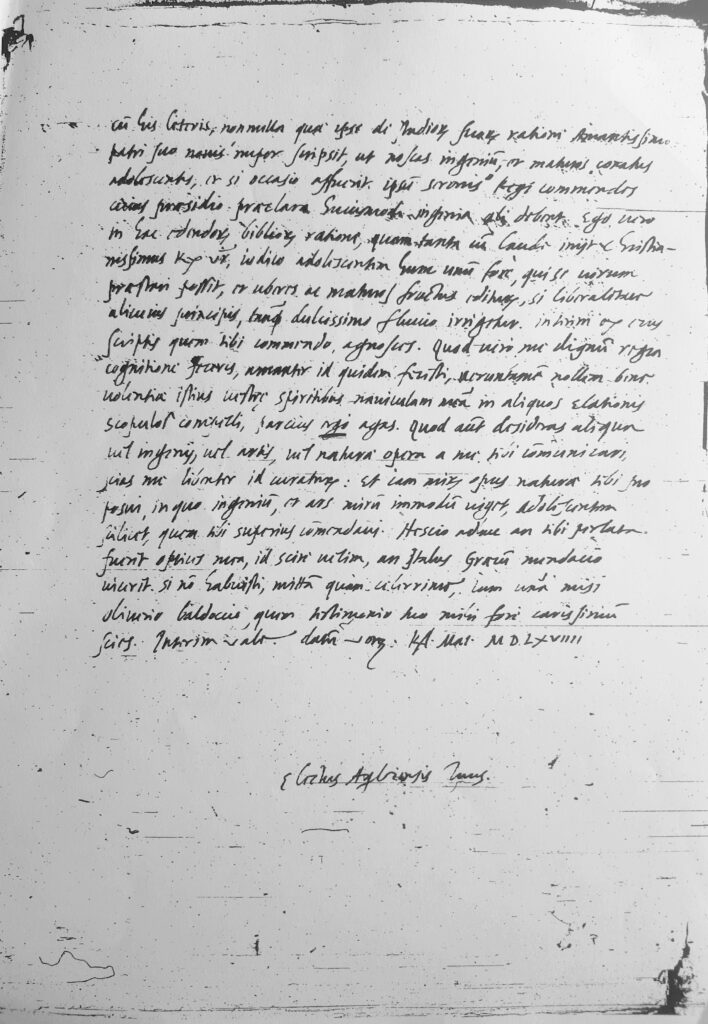 cū his literis, nonnulla quae ipse de studiorum suorum ratione Amantissimo
patri suo nomine nuper scripsit, ut noscas ingeniū, et maturos conatus
adolescentis, et si occasio affuerit ipsū serenis° Regi commendes
cuius praesidio praeclara huiusmodi ingenia ali debent. Ego vero
in hac edendorum bibliorum ratione, quam tanta cū laude inijt Christia-
nissimus Rex vr̄, iudico adolescentem hunc unū fore, qui se virum
praestare possit, et uberes ac maturos fructus editurum, si liberalitate
alicuius principis, tanq̄ dulcissimo fluvio irrigetur. interim ex eius
scriptis quem tibi commendo, agnosces. Quod vero me dignū regia
cognitione feceris, amanter id quidem fecisti, veruntamē nollem bene
volentia istius vestrae spiritibus naviculam meā in aliquos elationis
scopulos committi, parcius ergo agas. Quod aūt desideras aliqua
vel ingenij, vel artis, vel naturae opera a me tibi cōmunicari,
scias me libenter id curaturum: Et iam mirum opus naturae tibi pro
posui, in quo ingeniū, et ars mirū immodū viget, adolescentem
scilicet, quem tibi superius cōmendavi. Nescio adhuc an tibi perlata
fuerit optica mea, id scire velim, an Italus Graecū mendacio
vicerit. si nō habuisti, mittā quam celerrime, iam unā misi
oliverio baldoccio, quem testimonio tuo mihi fore carissimū
scies. Interim vale. datū K̄l Mai. M D LXVIIII
Tuus.